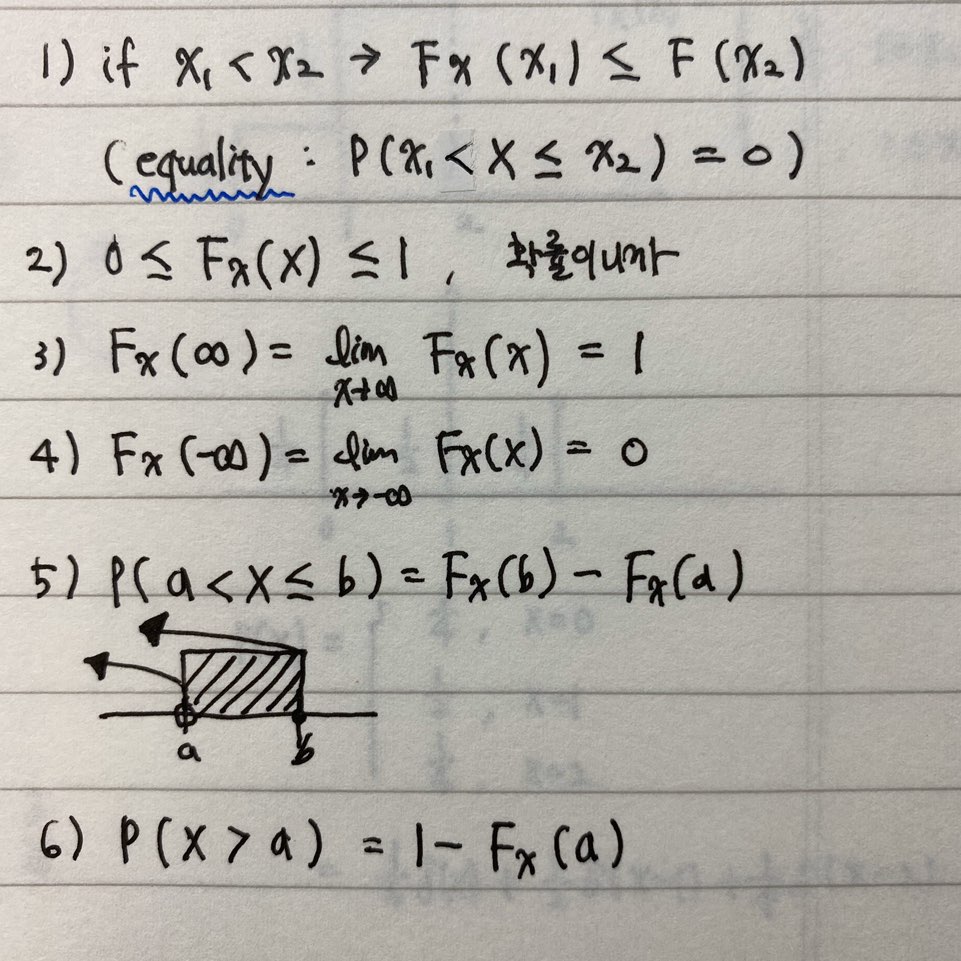 1) if x₁ < x₂ → Fx (x₁) ≤ F (x₂)
(equality : P(x₁ < X ≤ x₂) = 0)
2) 0 ≤ Fx(x) ≤ 1 , 확률이니까
3) Fx (∞) = lim x→∞ Fx(x) = 1
4) Fx (-∞) = lim x→-∞ Fx(x) = 0
5) P( a < X ≤ b) = Fx(b) - Fx(a)
a b
6) P (X > a) = 1 - Fx (a)